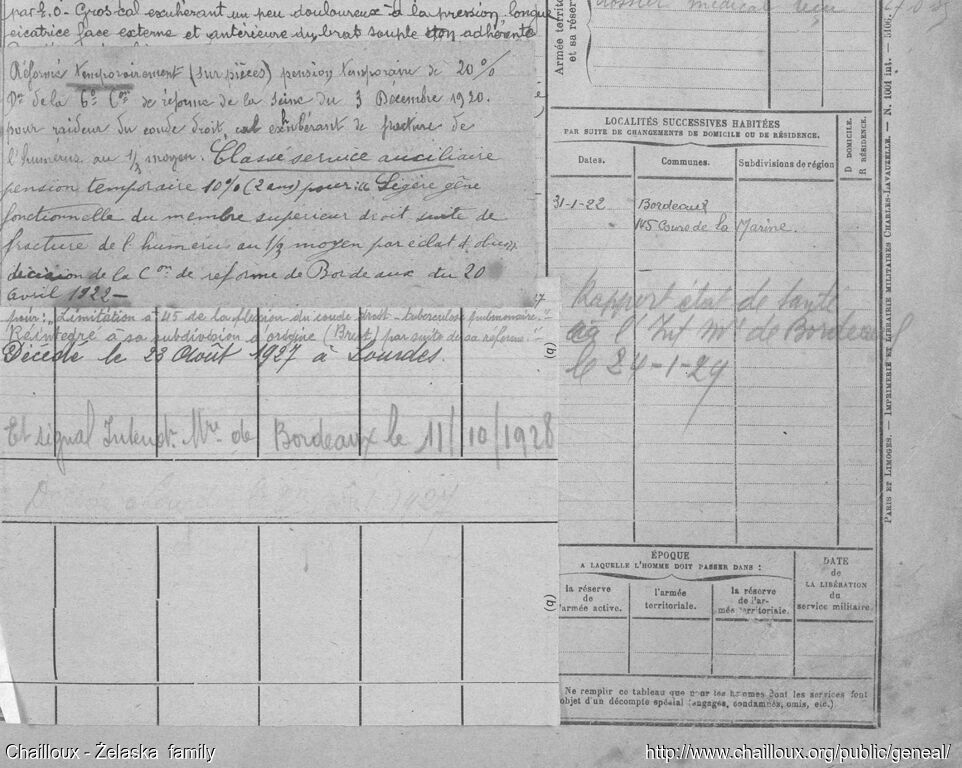 par E.O - Gros cal exubérant un peu douloureux à la pression, longue
cicatrice face externe et antérieure du bras souple et non adhérente
Réformé temporairement (sur pièces) pension temporaire de 20%
de la 6e Con de réforme de la Seine du 3 Décembre 1920.
pour raideur du coude droit, cal exubérant de fracture de
l'humérus au 1/3 moyen. Classé service auxiliaire
pension temporaire 10% (2 ans) pour: Légère gêne
fonctionnelle du membre supérieur droit suite de
fracture de l'humérus au 1/3 moyen par éclat d'obus
décision de la Con de réforme de Bordeaux du 20
avril 1922 -
pour: "Limitation à 45 de la flexion du coude droit - tuberculose pulmonaire."
Réintégré à sa subdivision d'origine (Brest) par suite de sa réforme
Décédé le 23 Août 1927 à Lourdes.
Et signal Intendt Mre de Bordeaux le 11/10/1928
Armée territo
et sa réserv
dossier médical reçu
LOCALITÉS SUCCESSIVES HABITÉES
PAR SUITE DE CHANGEMENTS DE DOMICILE OU DE RÉSIDENCE.
D DOMICILE.
R RÉSIDENCE.
Dates.
Communes.
Subdivisions de région
31-1-22
Bordeaux
145 Cours de la Marine.
Rapport état de santé
à l'Int Mre de Bordeaux
le 24-1-29
(q)
ÉPOQUE
A LAQUELLE L'HOMME DOIT PASSER DANS :
la réserve
de
l'armée active.
l'armée
territoriale.
la réserve
de l'ar-
mée territoriale.
DATE
de
LA LIBÉRATION
du
service militaire.
(q)
Ne remplir ce tableau que pour les hommes dont les services font
objet d'un décompte spécial (engagés, condamnés, omis, etc.)
PARIS ET LIMOGES. — IMPRIMERIE ET LIBRAIRIE MILITAIRES CHARLES-LAVAUZELLE. — N. 1001 int. — 5106.
Chailloux - Želaska family
http://www.chailloux.org/public/geneal/